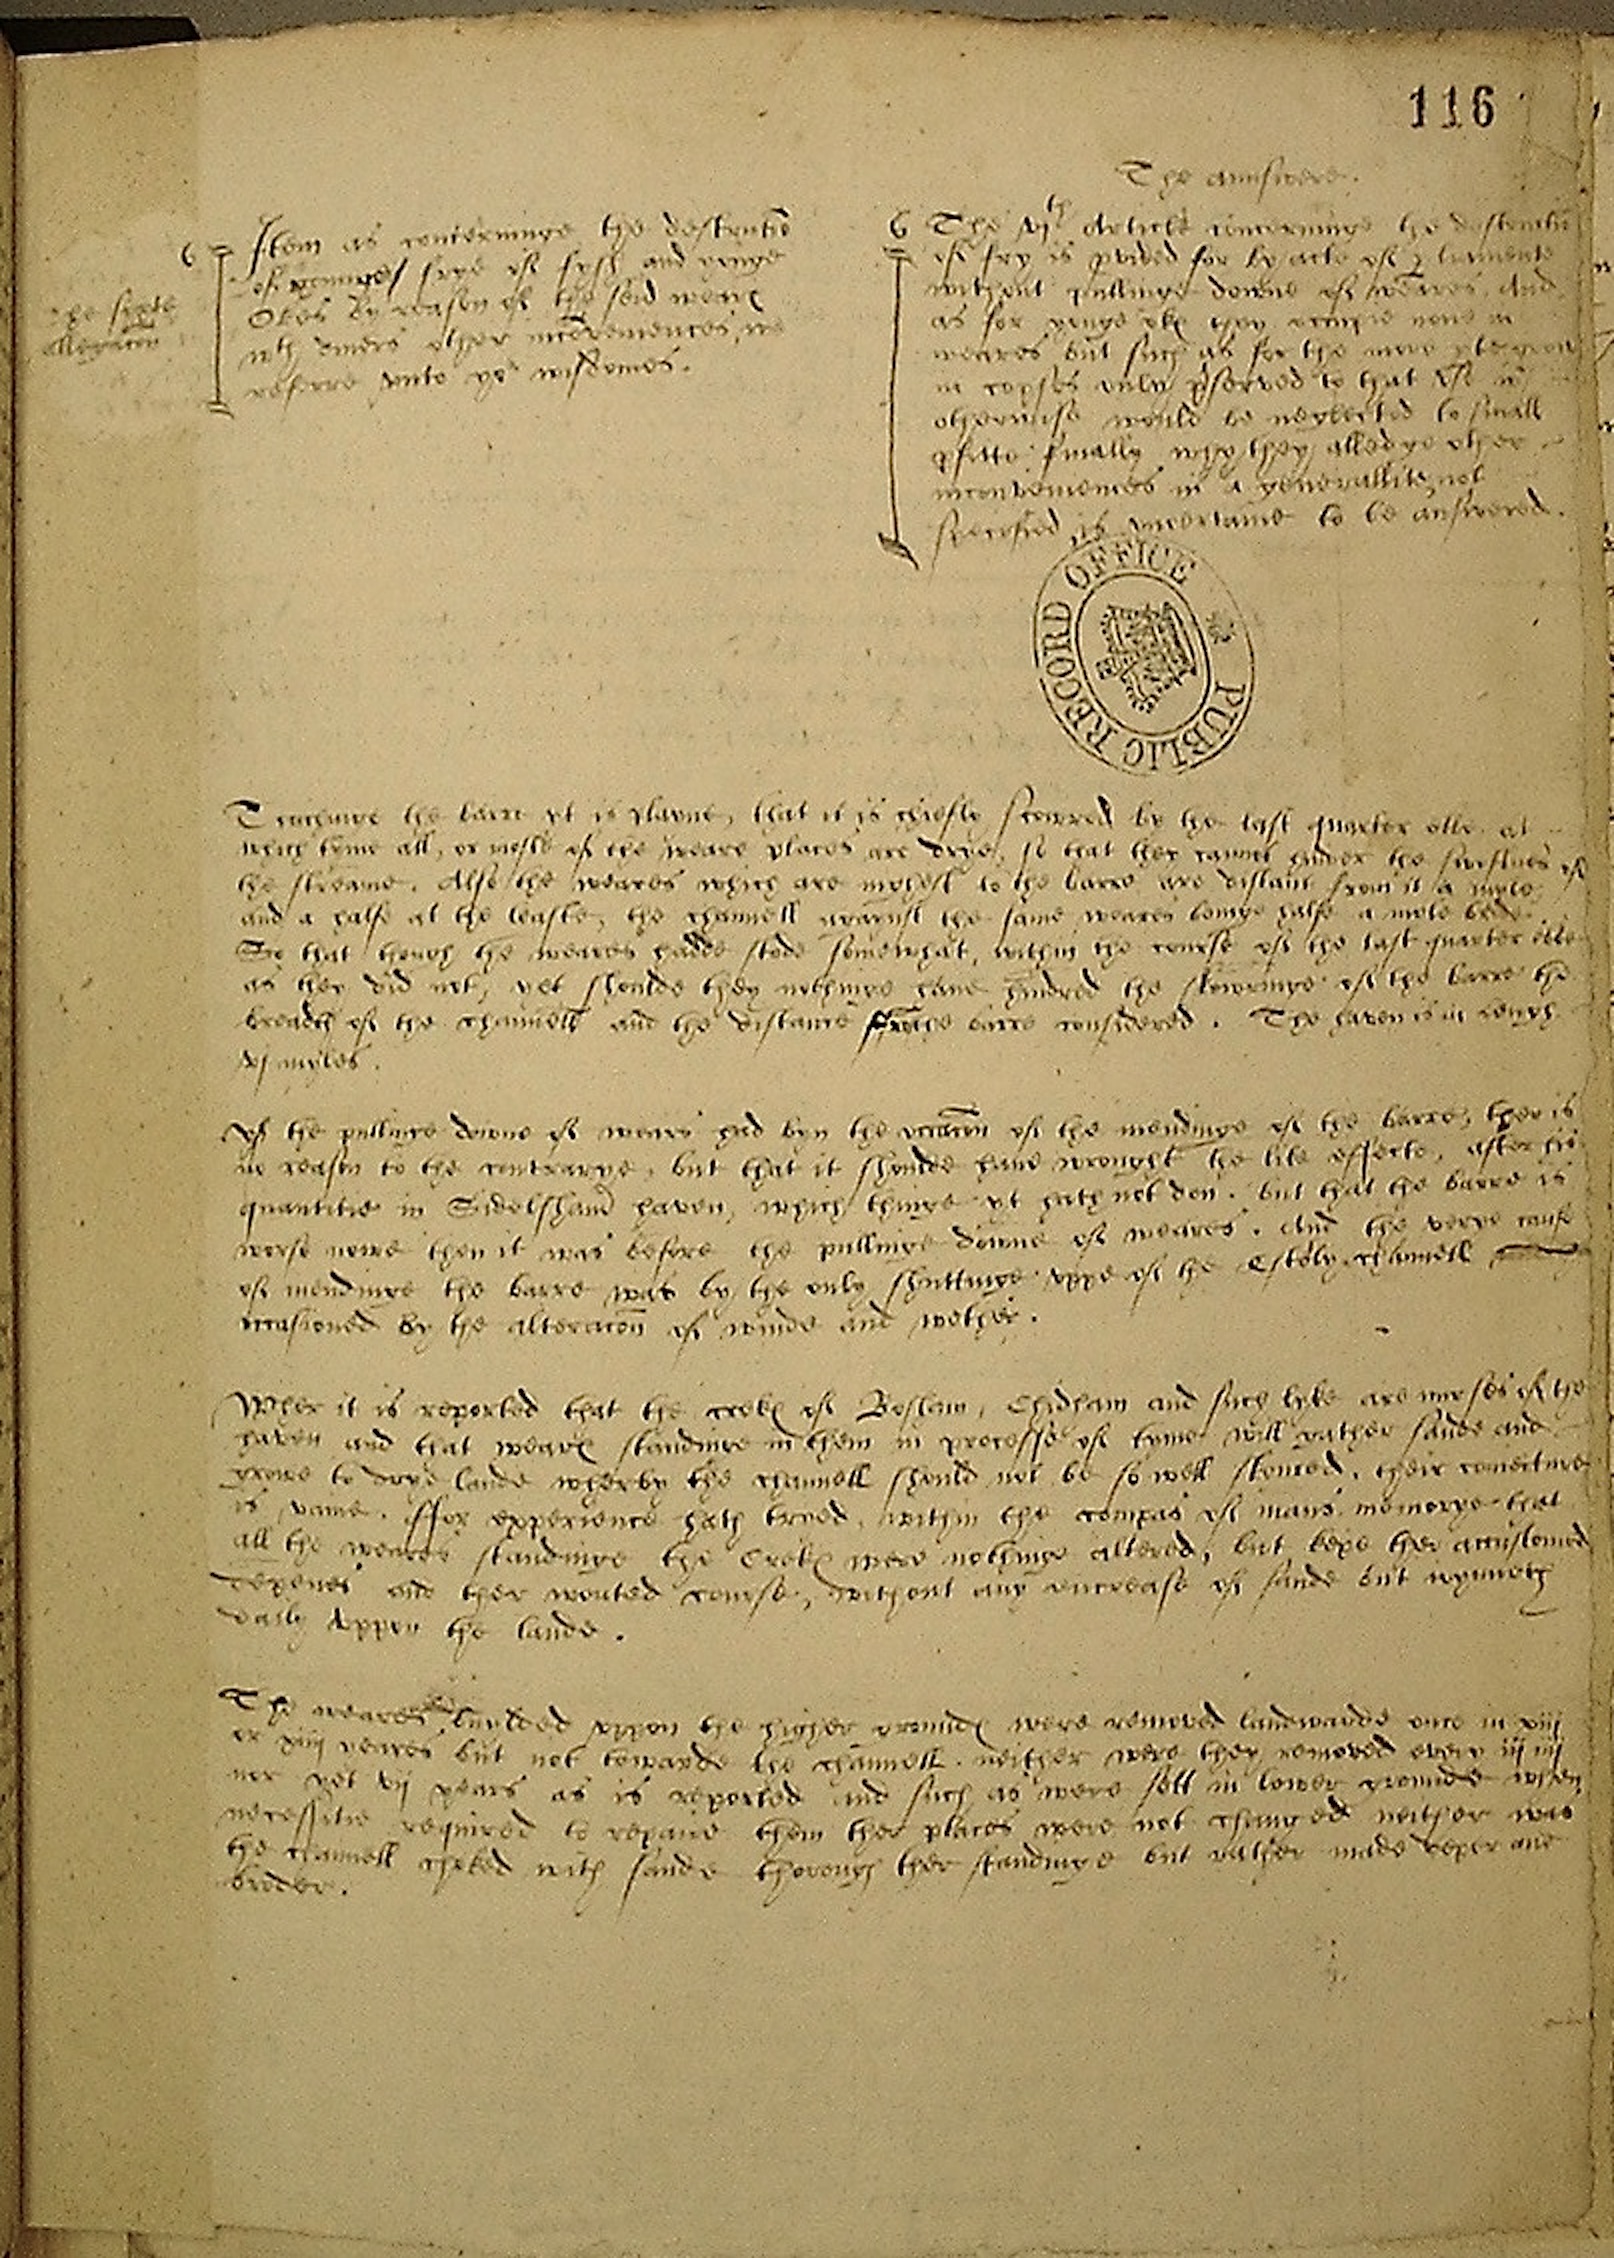 116
The sixte
allegacon
6 Item as concerninge the destructio
of yonnge frye of fysh and yonge
Okes by reason of the seid weares
wth divers other inconveniences, we
referre vnto yor wisdomes.
The aunswere.
6 The vjth Article concerninge the destructio
of fry is pvided for by acte of pliamente
without pullinge downe of weares. And
as for yonge okes they occupie none in
weares but such as for the more pte grow
in copses only pserved to that vse wch
otherwise would be neglected to small
pfitte finally why they alledge other
inconveniences in a generallite, not
specified is vncertaine to be answered.
PUBLIC RECORD OFFICE
Touchinge the barre yt is playne, that it is chiefly scowred by the last quarter ebbe at
which tyme all, or moste of the weare places are drye, so that they cannot hinder the swiftnes of
the streame. Also the weares which are nighest to the barre are distant from it a myle
and a halfe at the leaste, the channell against the same weares beinge halfe a myle brode.
So that though the weares hadde stode somewhat, within the course of the last quarter ebbe
as they did not, yet shoulde they nothinge have hindred the skowringe of the barre the
breadth of the channell and the distance from the barre considered. The haven is in lengh
vj myles.
Yf the pullinge downe of weares had byn the occacon of the mendinge of the barre, ther is
no reason to the contrarye, but that it shoulde have wrought the like effecte, after his
quantitie in Sidelsham haven, which thinge yt hath not don. but that the barre is
worse nowe then it was before the pullinge downe of weares. And the verye cause
of mendinge the barre was by the only shuttinge vppe of the Estely channell
occasioned by the alteracon of winde and wether.
Wher it is reported that the crekes of Bosham, Chidham and such lyke are nurses of the
haven and that weares standinge in them in processe of tyme will gather sande and
growe to drye lande wherby the channell should not be so well skoured, their coniecture
is vaine. ffor experience hath tryed, within the compas of mans memorye that
all the weares standinge the Crekes were nothinge altered, but kepe ther accustomed
depenes and ther wonted course, without any encrease of sande but wynneth
daily vppon the lande.
The weares buylded vppon the higher groundes were removed landwarde once in xiij
or xiiij yeares but not towarde the channell. neither were they removed every iij iiij
nor yet vij years as is reported and such as were sett in lower grounde when
necessitie required to repaire them ther places were not chaunged neither was
the channell choked with sande thorough ther standinge but rather made deper and
broder.